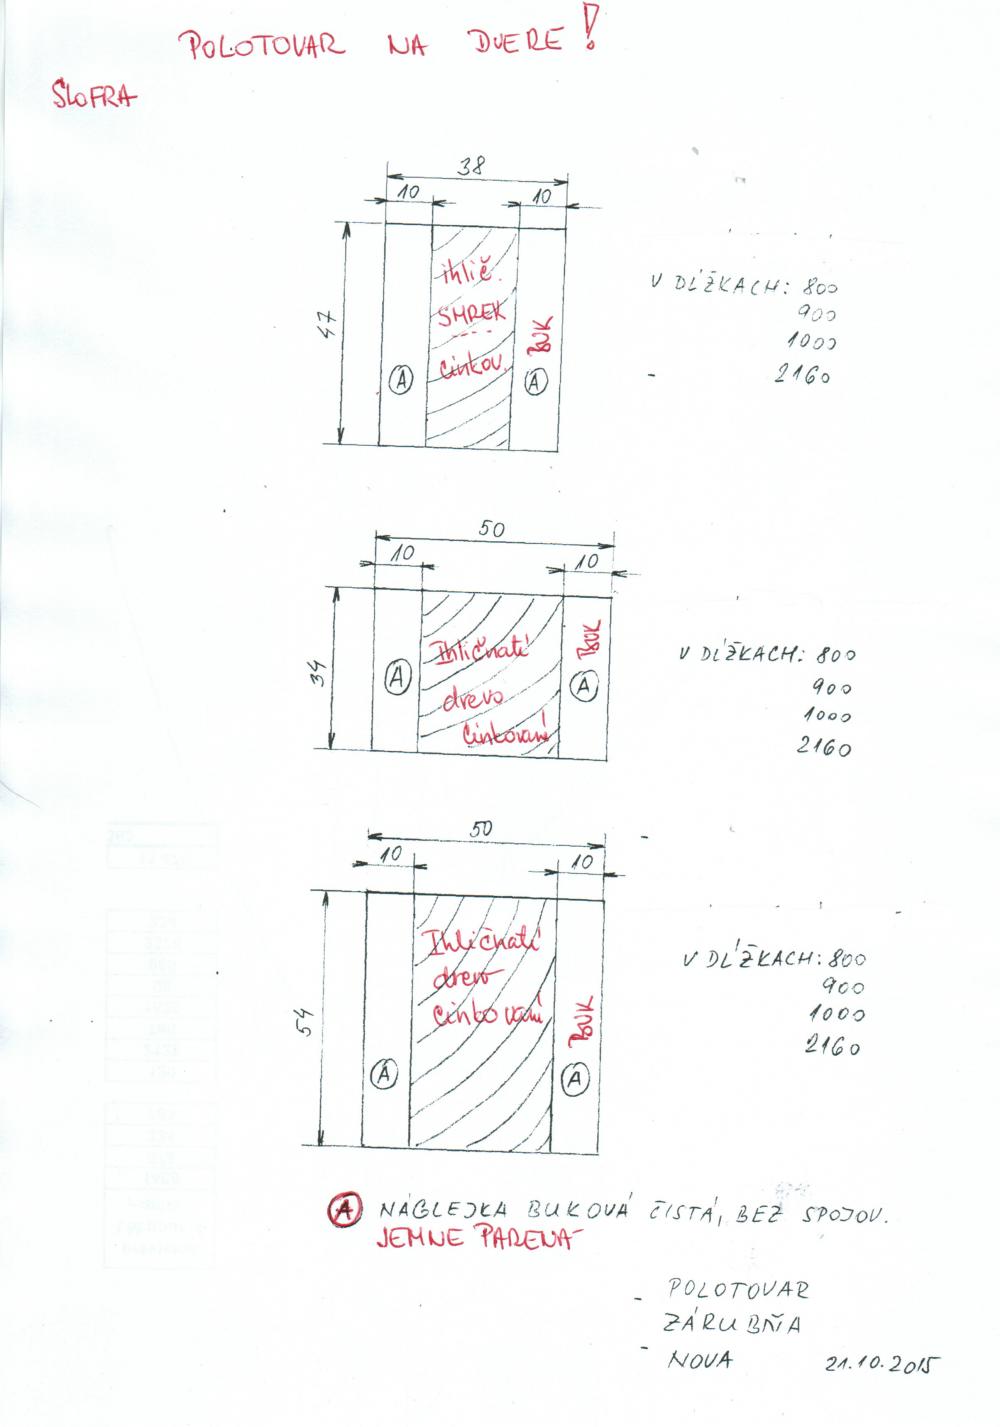 POLOTOVAR NA DVERE!
ŠLOFRA
38
10 10
47
ihlič.
SMREK
cinkov.
BUK
A A
V DĹŽKACH: 800
900
1000
- 2160
50
10 10
34
Ihličnaté
drevo
cinkované
BUK
A A
V DĹŽKACH: 800
900
1000
2160
50
10 10
54
Ihličnaté
drevo
cinkované
BUK
A A
V DĹŽKACH: 800
900
1000
2160
A NÁGLEJKA BUKOVÁ ČISTÁ, BEZ SPOJOV.
JEMNE PARENÁ
- POLOTOVAR
ZÁRUBŇA
- NOVA 21.10.2015